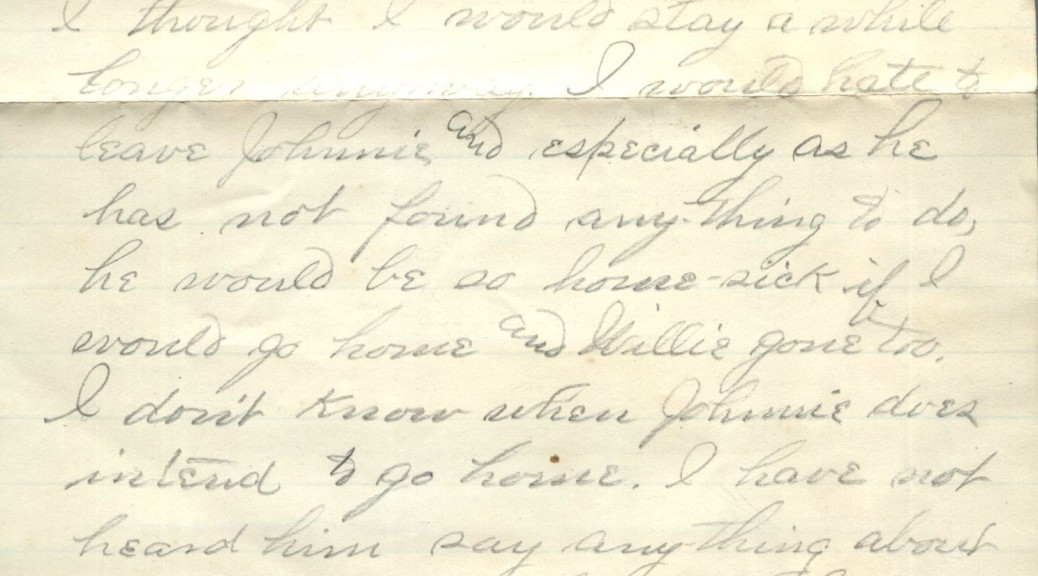 I thought I would stay a while
longer anyway. I would hate to
leave Johnnie and especially as he
has not found any-thing to do,
he would be so home-sick if I
would go home and Willie gone too.
I don't know when Johnnie does
intend to go home. I have not
heard him say any-thing about